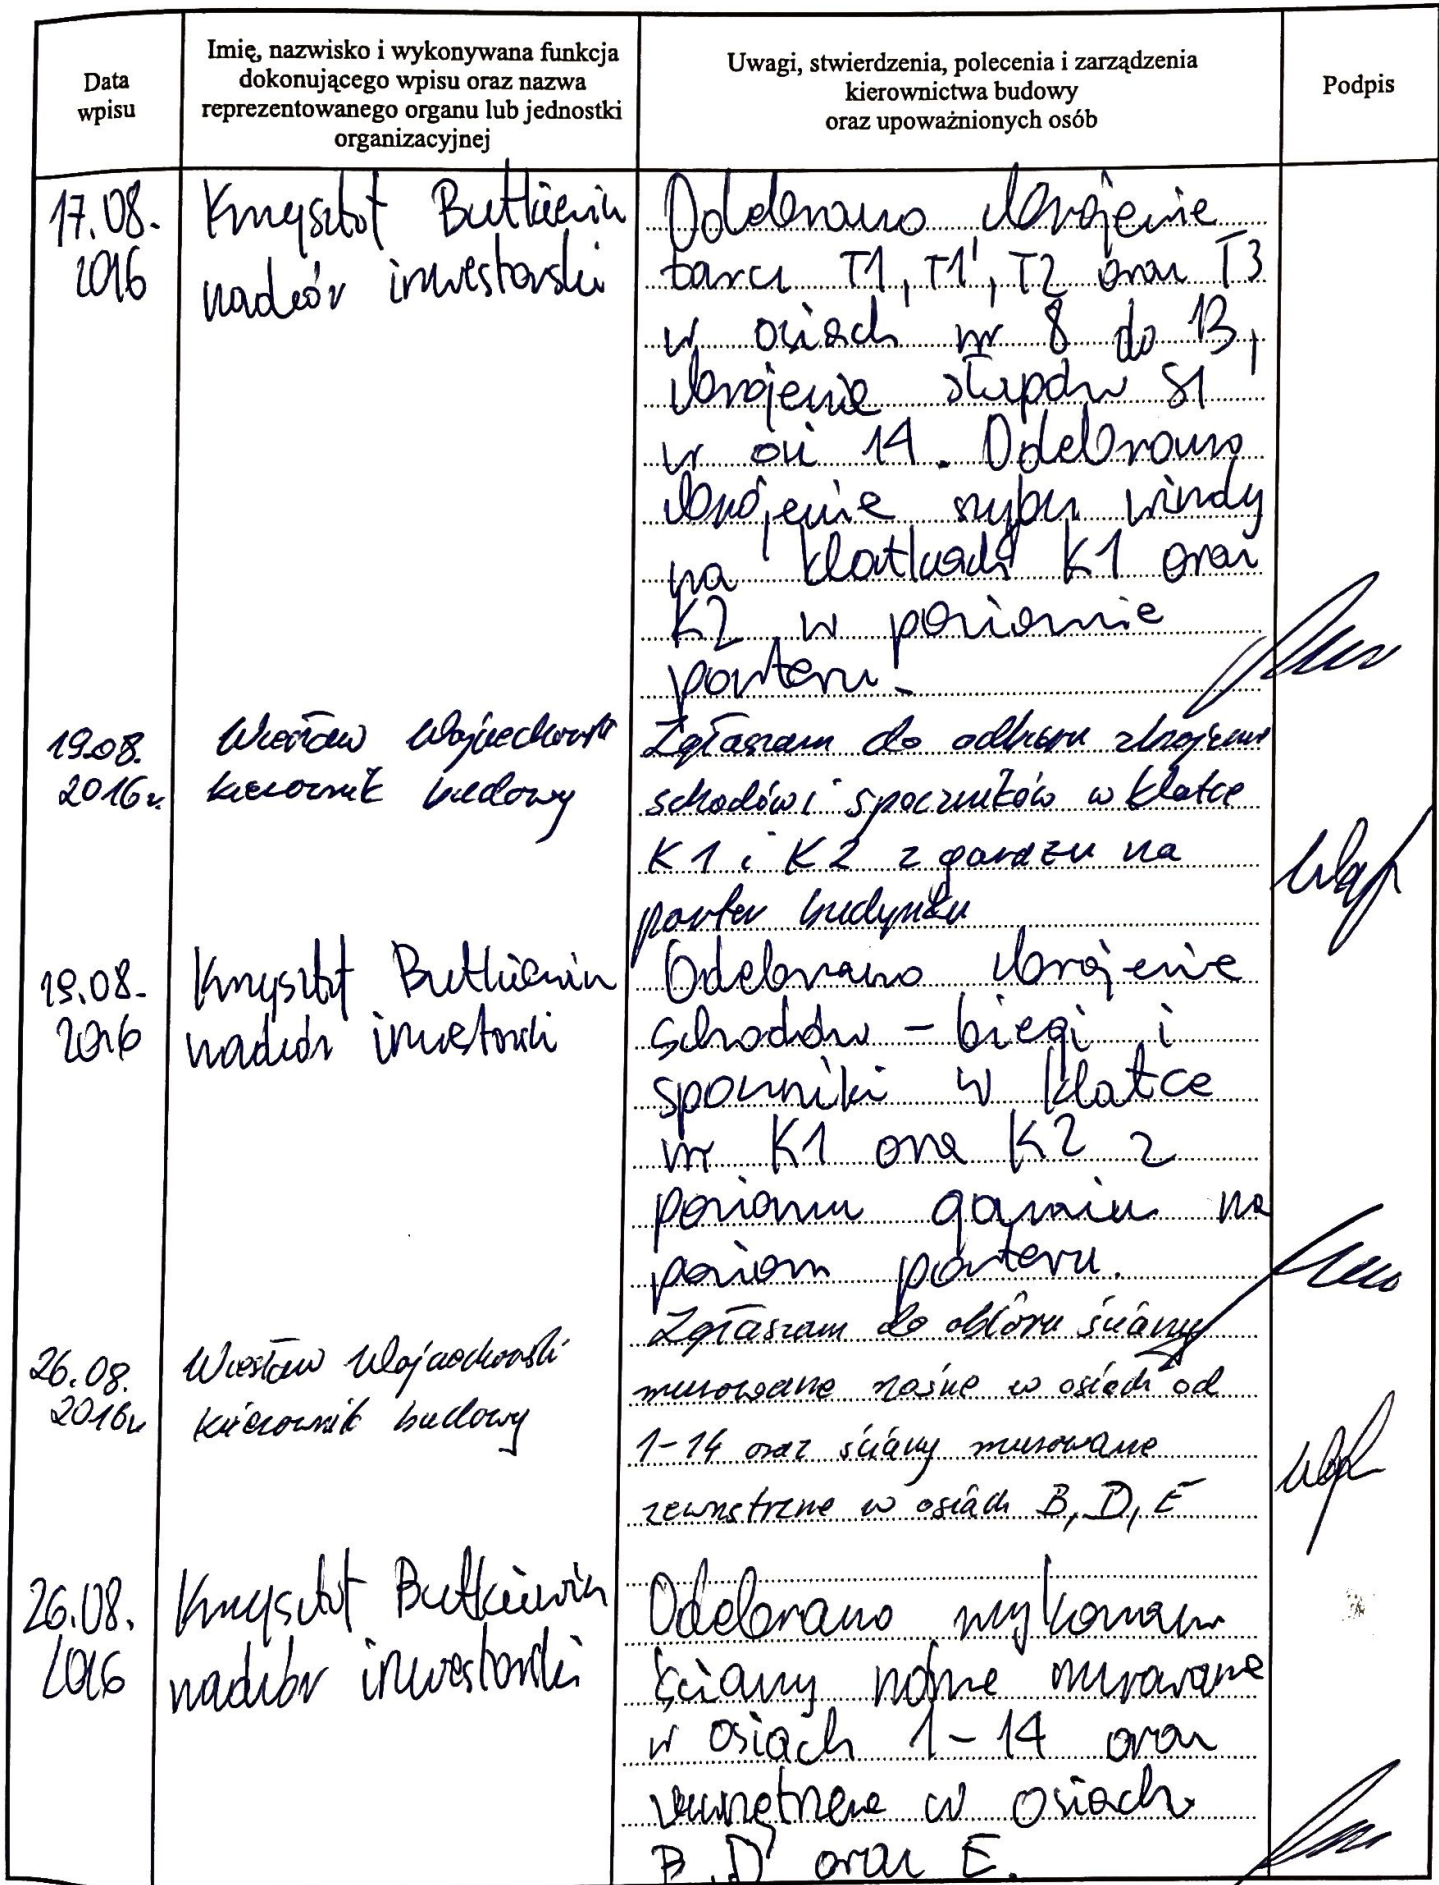 Data
wpisu
Imię, nazwisko i wykonywana funkcja
dokonującego wpisu oraz nazwa
reprezentowanego organu lub jednostki
organizacyjnej
Uwagi, stwierdzenia, polecenia i zarządzenia
kierownictwa budowy
oraz upoważnionych osób
Podpis
17.08.
2016
Krzysztof Butkiewicz
nadzór inwestorski
Odebrano zbrojenie
tarcz T1, T1', T2 oraz T3
w osiach nr 8 do 13,
zbrojenie słupów S1
w osi 14. Odebrano
zbrojenie szybu windy
na klatkach K1 oraz
K2 w poziomie
parteru.
19.08.
2016r.
Wiesław Wojciechowski
kierownik budowy
Zgłaszam do odbioru zbrojenie
schodów i spoczników w klatce
K1 i K2 z garażu na
parter budynku
19.08.
2016
Krzysztof Butkiewicz
nadzór inwestorski
Odebrano zbrojenie
schodów - biegi i
spoczniki w klatce
nr K1 oraz K2 z
poziomu garażu na
poziom parteru.
26.08.
2016r
Wiesław Wojciechowski
kierownik budowy
Zgłaszam do odbioru ściany
murowane nośne w osiach od
1-14 oraz ściany murowane
zewnętrzne w osiach B, D, E
26.08.
2016
Krzysztof Butkiewicz
nadzór inwestorski
Odebrano wykonane
ściany nośne murowane
w osiach 1-14 oraz
zewnętrzne w osiach
B, D oraz E.